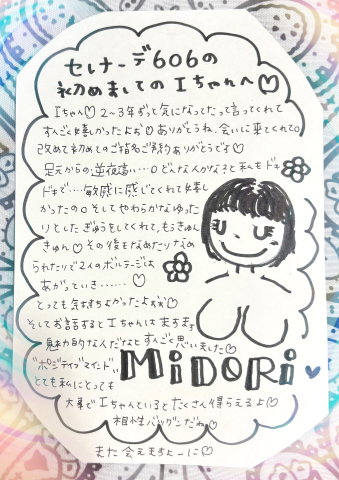 セレナーデ606の
初めましてのIちゃんへ♡
Iちゃん♡2〜3年ずっと気になってたって言ってくれて
すんごく嬉しかったよぉ♡ありがとうね、会いに来てくれて。
改めて初めてのご指名ご予約ありがとうです♡
足元からの逆夜這い…。どんな人かな?と私もドキ
ドキで…敏感に感じてくれて嬉し
かったの。そしてやわらかなゆった
りとしたぎゅうをしてくれて、もうきゅん
きゅん♡その後もなめたりなめ
られたりで2人のボルテージは
あがっていき……♡
とっても気持ちよかったよぉぉ♡
そしてお話するとIちゃんはますます
魅力的な人だなとすんごく思いました♡
"ポジティブマインド"
とても私にとっても
MiDORi
大事でIちゃんといるとたくさん得られるよ♡
相性バツグンだね♡
また会えますよーに♡